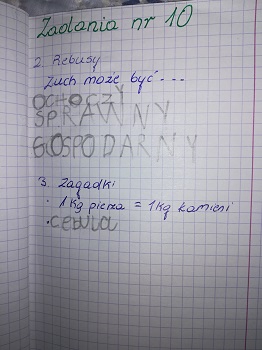 Zadania nr 10
2. Rebusy
Zuch może być...
OCHOCZY
SPRAWNY
GOSPODARNY
3. Zagadki
• 1 kg pierza = 1 kg kamieni
• CEBULA